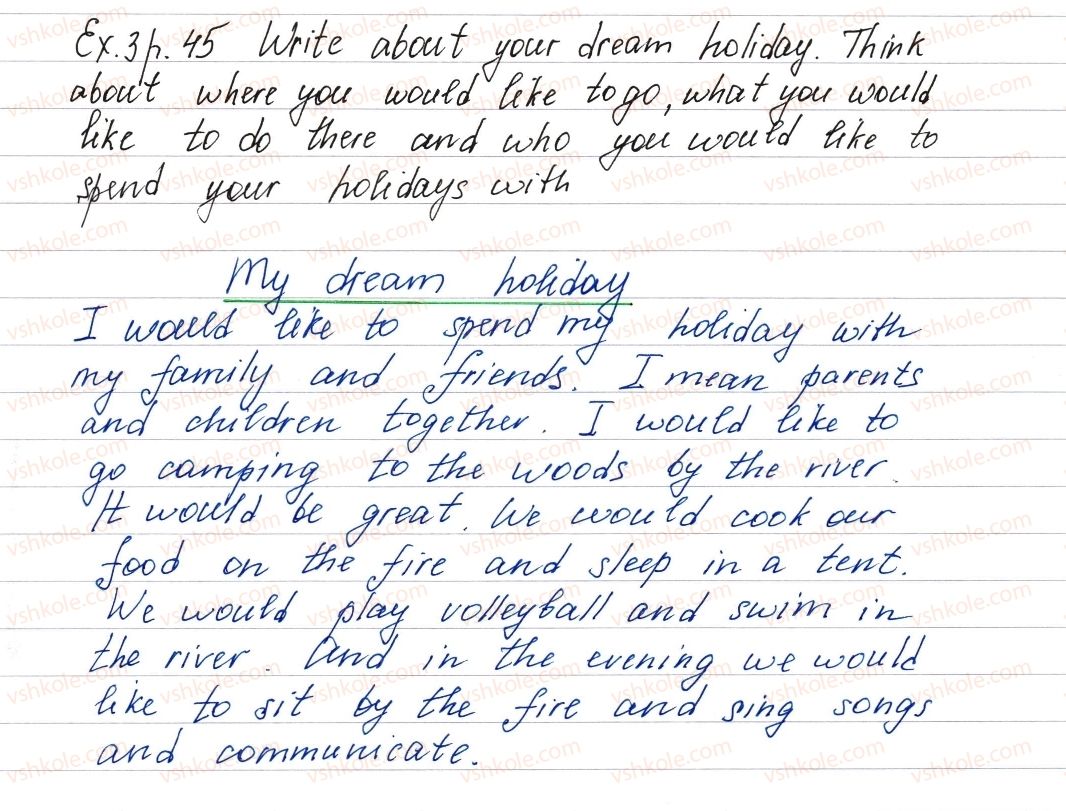 Ex. 3 p. 45 Write about your dream holiday. Think
about where you would like to go, what you would
like to do there and who you would like to
spend your holidays with
My dream holiday
I would like to spend my holiday with
my family and friends. I mean parents
and children together. I would like to
go camping to the woods by the river.
It would be great. We would cook our
food on the fire and sleep in a tent.
We would play volleyball and swim in
the river. And in the evening we would
like to sit by the fire and sing songs
and communicate.
vshkole.com